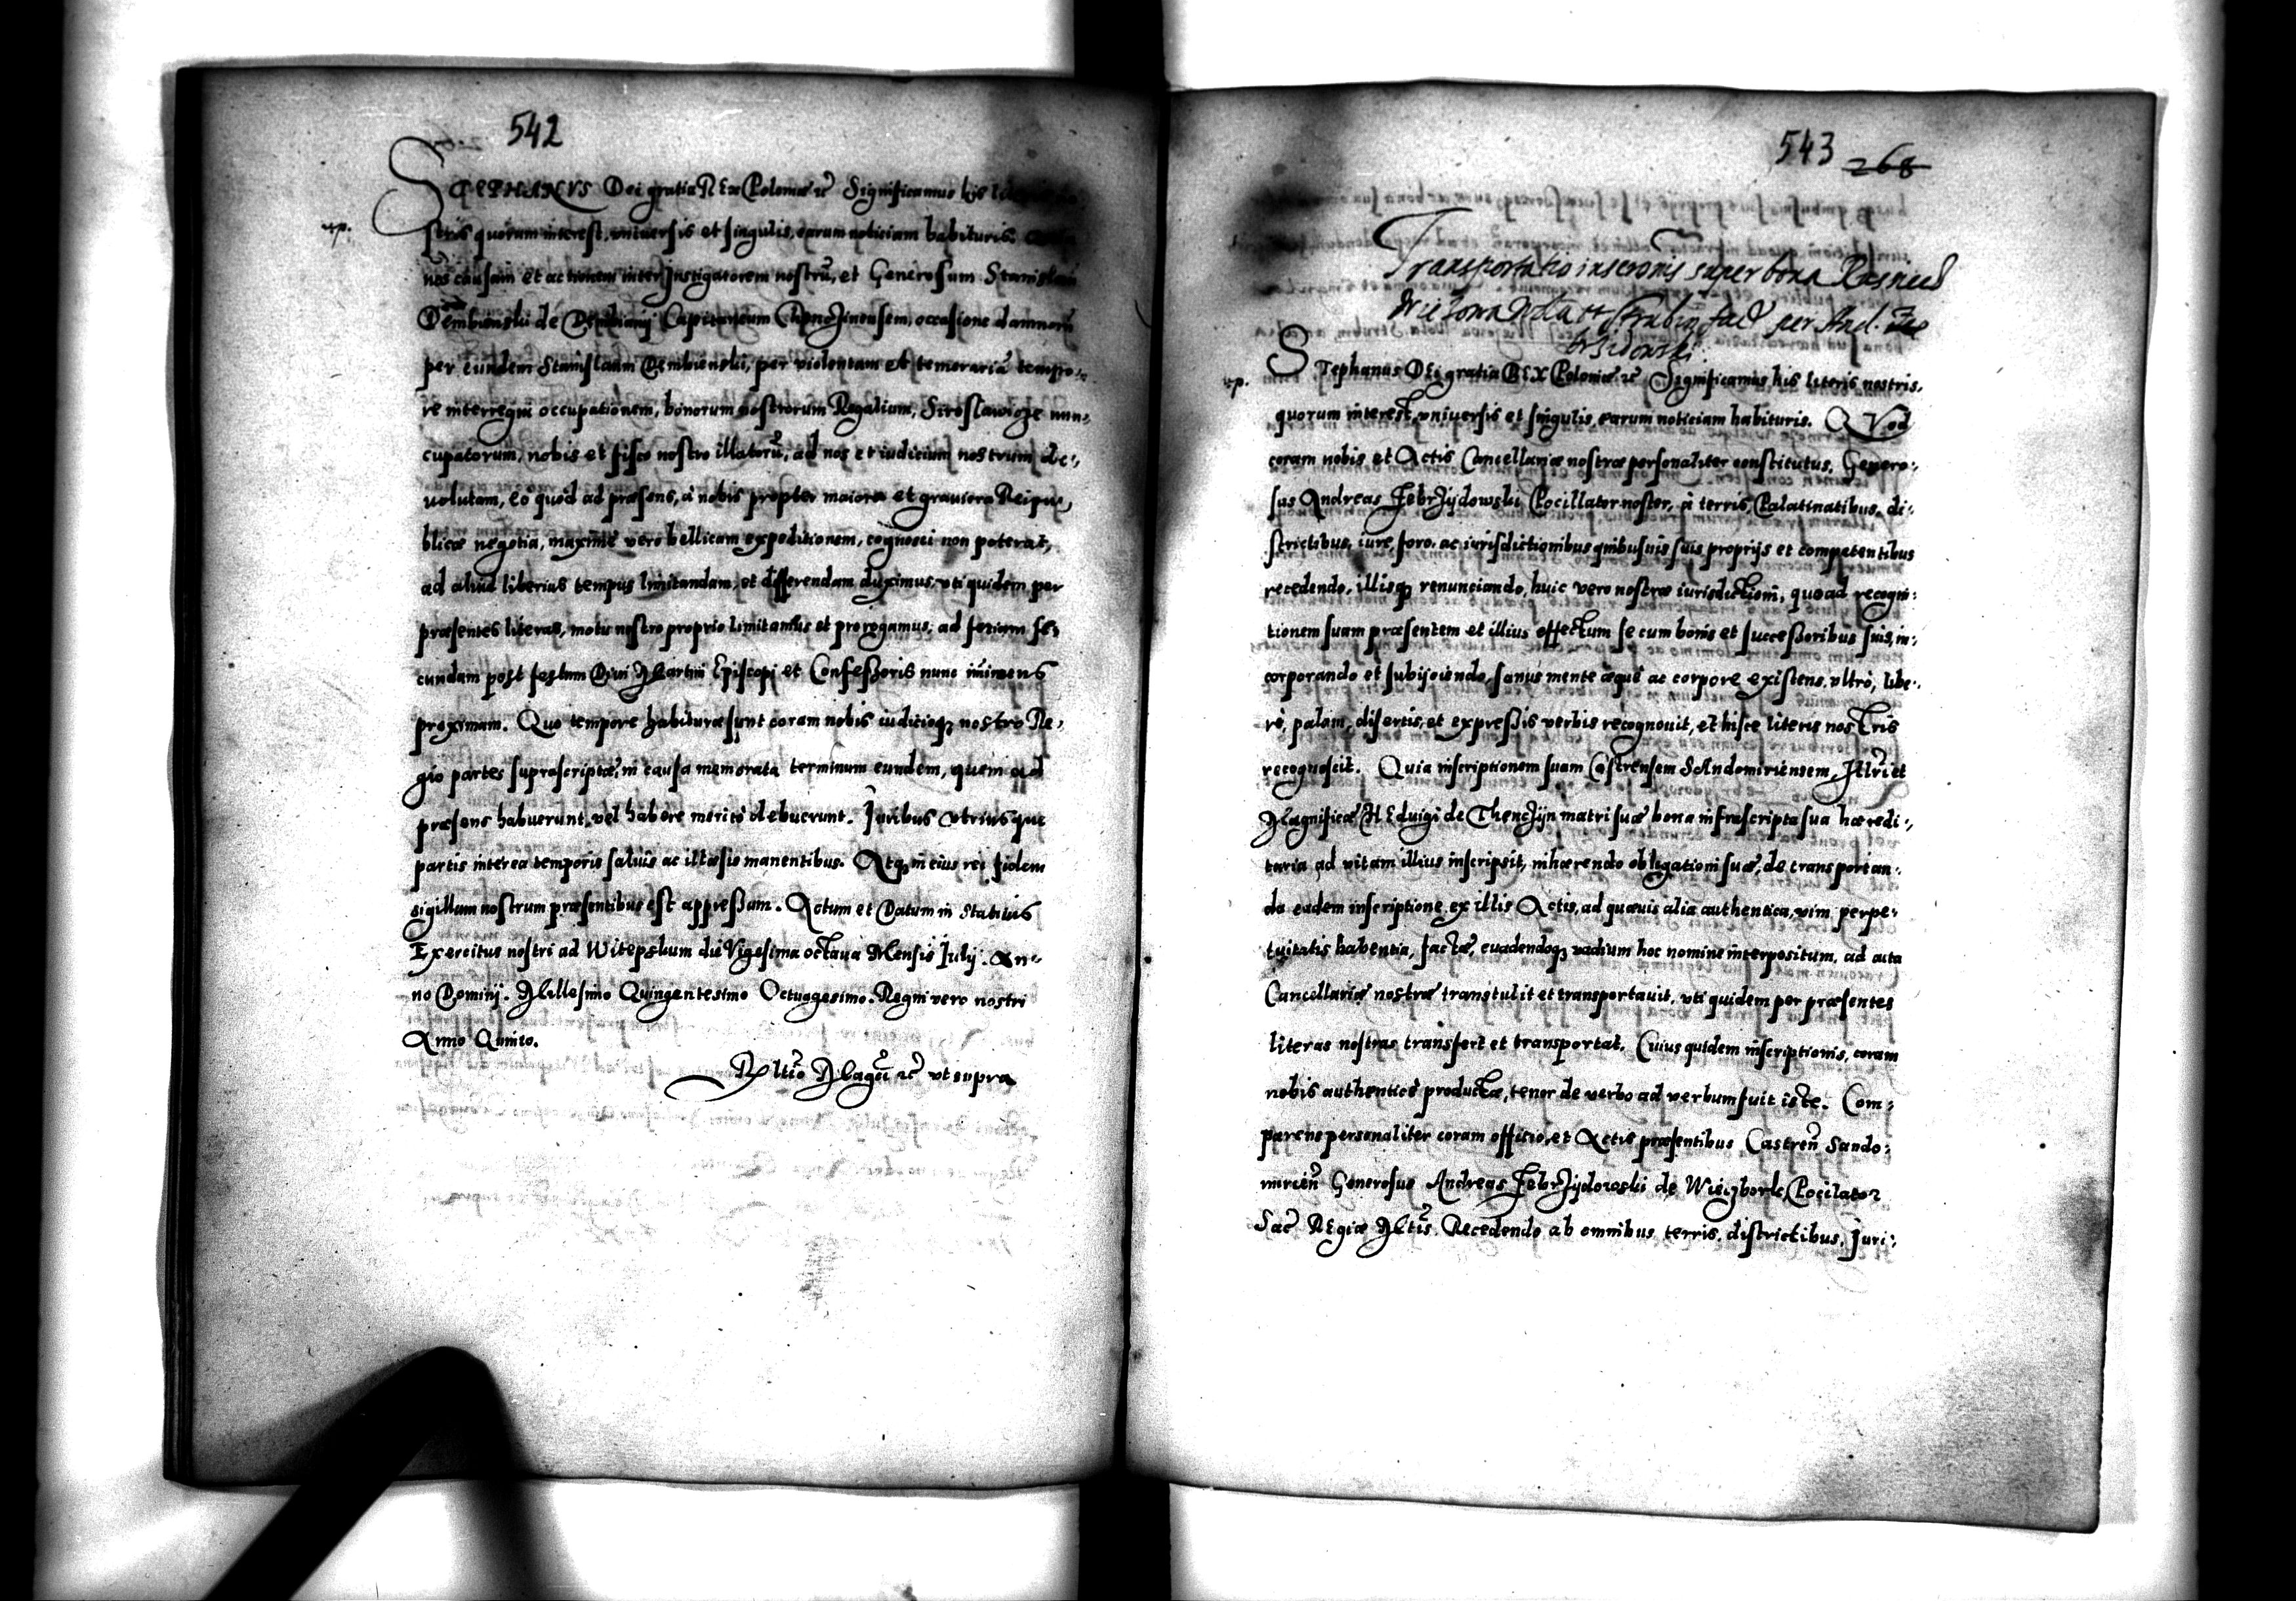 542
STEPHANVS Dei gratia REx Poloniæ etc̃ Significamus his
stris quorum interest, vniuersis et singulis, earum noticiam habituris.
nos causam et actionem inter Instigatorem nostrũ, et Generosum Stanislaũ
Dembienski de Dembiany Capitaneum Chenczinensem, occasione damnorũ
per eundem Stanislaum Dembienski, per violentam et temerariã tempo-
re interregni occupationem, bonorum nostrorum Regalium, Siroslawicze nun-
cupatorum, nobis et fisco nostro illatorũ, ad nos et iudicium nostrum de-
uolutam, eo quod ad præsens, à nobis propter maiora et grauiora Reipu-
blicæ negotia, maximè vero bellicam expeditionem, cognosci non poterat,
ad aliud liberius tempus limitandam, et differendam duximus, vti quidem per
præsentes literas, motu nostro proprio limitamus et prorogamus, ad feriam se-
cundam post festum Diui Martini Episcopi et Confeßoris nunc iminens
proximam. Quo tempore habituræ sunt coram nobis iudicioq3 nostro Re-
gio partes suprascriptæ, in causa memorata terminum eundem, quem ad
præsens habuerunt, vel habere meritò debuerunt. Iuribus vtriusque
partis interea temporis saluis ac illæsis manentibus. Atq3 in eius rei fidem
sigillum nostrum præsentibus est appreßum. Actum et Datum in Statiuis
Exercitus nostri ad Witepskum die Vigesima octaua Mensis Iulij. An-
no Dominj. Millesimo Quingentesimo Octuagesimo. Regni vero nostri
Anno Quinto.
Rltĩo Magcĩ etc̃ vt supra
543 268
Transportatio inscrõnis super bona Rasnecz
Wietowa Wola et Grabin fac̃ per And.
brzidowski.
STephanus DEi gratia REX Poloniæ etc̃ Significamus his literis nostris,
quorum interest, vniuersis et singulis, earum noticiam habituris. QVod
coram nobis et Actis Cancellariæ nostræ personaliter constitutus, Genero-
sus Andreas Zebrzydowski Pocillator noster, à terris, Palatinatibus, di-
strictibus, iure, foro, ac iurisdictionibus quibusuis suis proprijs et competentibus
recedendo, illisq3 renunciando, huic vero nostræ iurisdictioni, quoad recogni-
tionem suam præsentem et illius effectum se cum bonis et succeßoribus suis, in-
corporando et subijciendo, sanus mente æquè ac corpore existens, vltrò, libe-
rè, palam, disertis, et expreßis verbis recognouit, et hisce literis nostris
recognoscit. Quia inscriptionem suam Castrensem SAndomiriensem, Illri et
Magnificæ HEduigi de Thenczyn matri suæ bona infrascripta sua hæredi-
taria ad vitam illius inscripsit, inhærendo obligationi suæ, de transportan-
da eadem inscriptione, ex illis Actis, ad quæuis alia authentica, vim perpe-
tuitatis habentia, factæ, euadendoq3 vadium hoc nomine interpositum, ad acta
Cancellariæ nostræ transtulit et transportauit, vti quidem per præsentes
literas nostras transfert et transportat. Cuius quidem inscriptionis, coram
nobis authenticè productæ, tenor de verbo ad verbum fuit iste. Com-
parens personaliter coram officio, et Actis præsentibus Castreñ Sando-
mirieñ Generosus Andreas Zebrzydowski de Więczbork, Pocilator
Sac̃ REgiæ Mtis. Recedendo ab omnibus terris, districtibus, Juri-